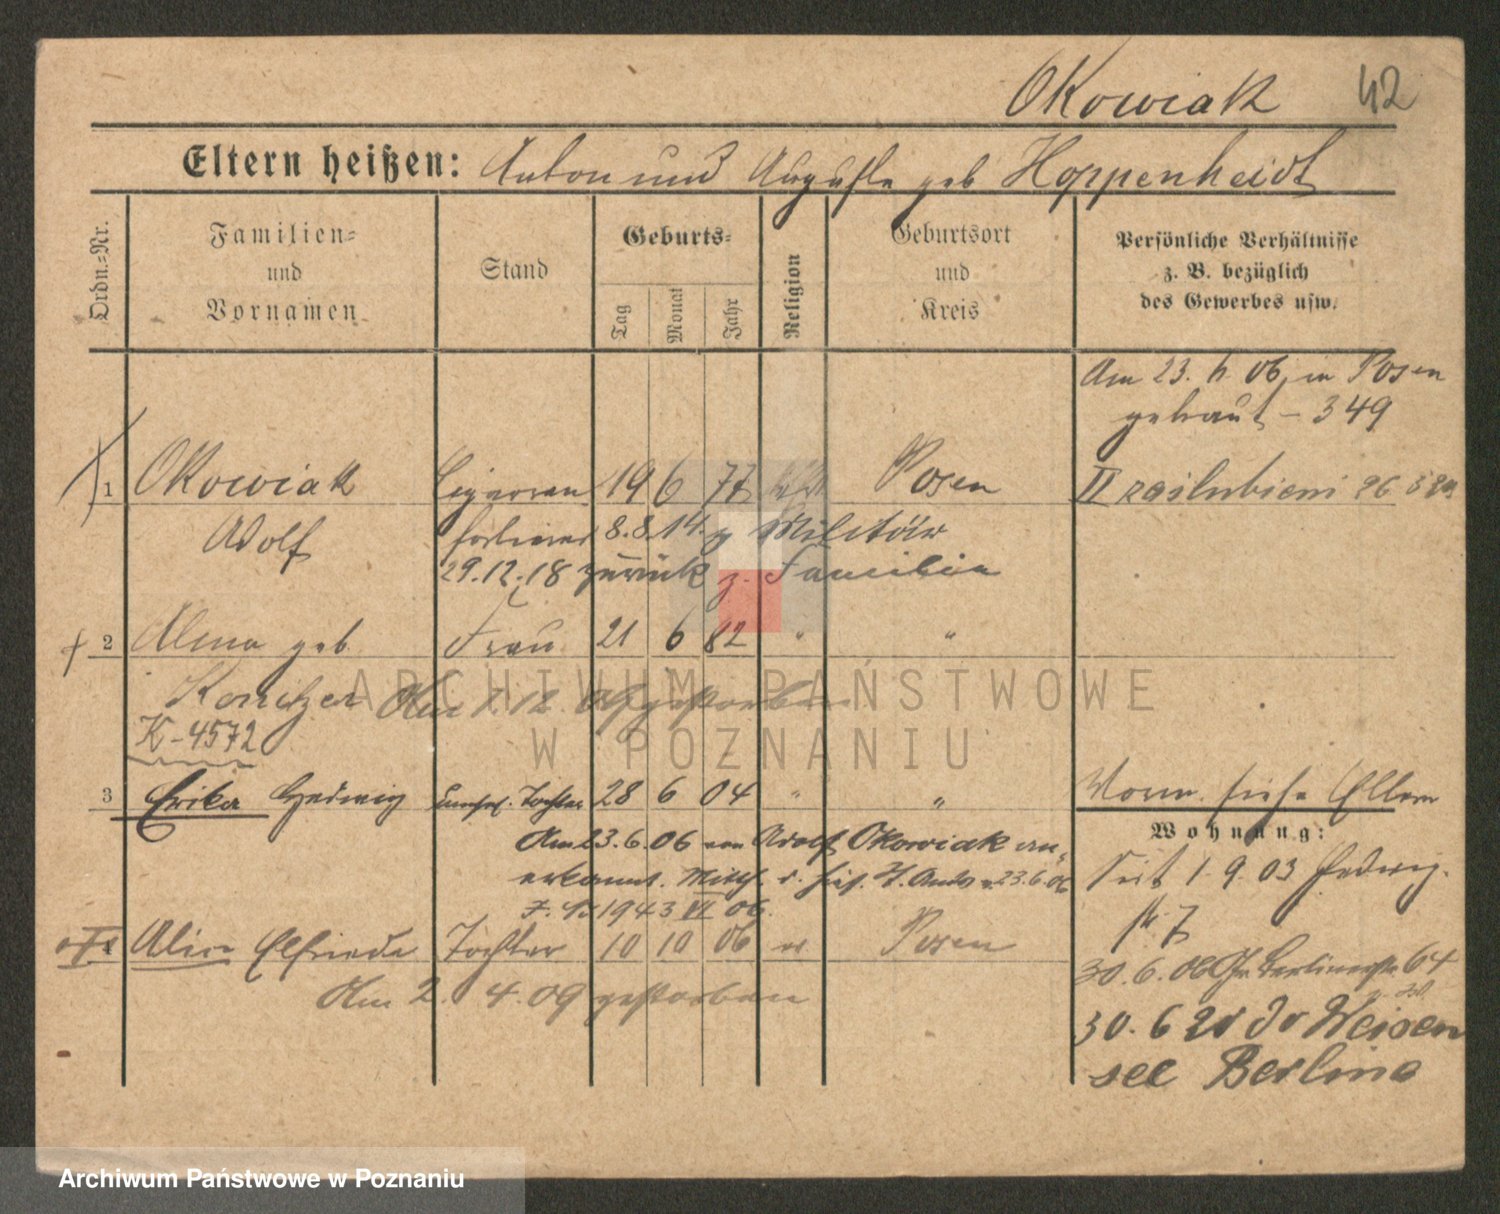 Okowiak 42
Eltern heißen: Anton und Auguste geb Hoppenheidt
Ordn.-Nr.
Familien-
und
Vornamen
Stand
Geburts-
Tag
Monat
Jahr
Religion
Geburtsort
und
Kreis
Persönliche Verhältnisse
z. B. bezüglich
des Gewerbes usw.
Am 23. 6. 06 in Posen
getraut - 349
1 Okowiak Cigarren 19 6 77 Posen
II zaślubieni
Adolf sortierer 8.8.14. z Militär
29.12.18 zurück z. Familie
2 Alma geb. Frau 21 6 82 " "
Konitzer Am 12 gestorben
K-4572
3 Erika Hedwig Tochter 28 6 04 " "
Norm. siehe Eltern
Wohnung:
Am 23.6.06 von Adolf Okowiak an-
erkannt. Mitt. d. hies. St. Amts v. 23.6.06
J. N. 1943 VI 06.
Seit 1. 9. 03 Hedwig-
str 7
Alice Elfriede Tochter 10 10 06 ev Posen
30. 6. 06 Gr. Berlinerstr 64
Am 2. 4. 09 gestorben
30. 6 20 Weisen
see Berlin
ARCHIWUM PAŃSTWOWE
W POZNANIU
Archiwum Państwowe w Poznaniu